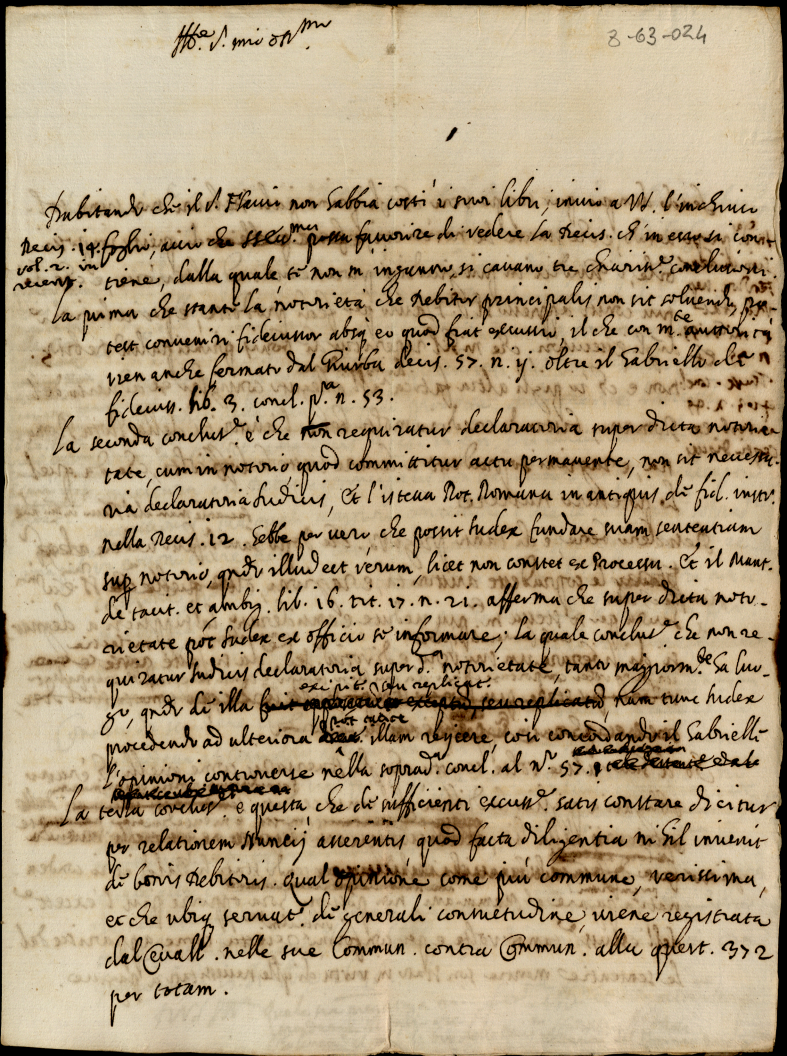 8-63-024
Dubitando che il S. Flavio non habbia costì i suoi libri, invio a VS. l'inchiuso
foglio, acciò che possa favorire di vedere la Decis. ch'in esso si con-
Decis. 14.
vol. 2. in
recent.
tiene, dalla quale se non m'inganno, si cavano tre chariss.e conclusioni.
La prima che stante la notorietà che debitor principalis non sit solvendo, po-
test conveniri fideiussor absq eo quod fiat excussio, il che con m.te
vien anche fermato dal Giurba decis. 57. n. ij. oltre il Gabrielli de
fideiuss. lib. 3. concl. p.a n. 53.
La seconda conclus.e è che non requiratur declaratoria super dicta notorie-
tate, cum in notorio, quod committitur actu permanente, non sit necessa-
ria declaratoria Iudicis, et l'istessa Rot. Romana in antiquis de fid. instr.
nella Decis. 12. hebbe per vero, che possit Iudex fundare suam sententiam
sup notorio, qndo illud est verum, licet non constet ex Processu. Et il Mant.
de tacit. et ambig. lib. 16. tit. 17. n. 21. afferma che super dicta noto-
rietate pot Iudex ex officio se informare; la quale conclus.e che non re-
quiratur Iudicis declaratoria super d.a notorietate, tanto maggiorm.te ha luo-
excipit. seu replicat.
go, qndo de illa nam tunc Iudex
pot
procedendo ad ulteriora illam reijcere, così concordando il Gabrielli
l'opinioni controverse nella soprad.a concl. al n.o 57.
La terza conclus.e è questa che de sufficienti excuss.e satis constare dicitur
per relationem Nuncij asserentis quod facta diligentia nihil invenit
de bonis debitoris. qual opinione come più commune, verissima,
et che ubiq servat.r de generali consuetudine, viene registrata
dal Cevall. nelle sue Commun. contra Commun. alla quest. 372
per totam.